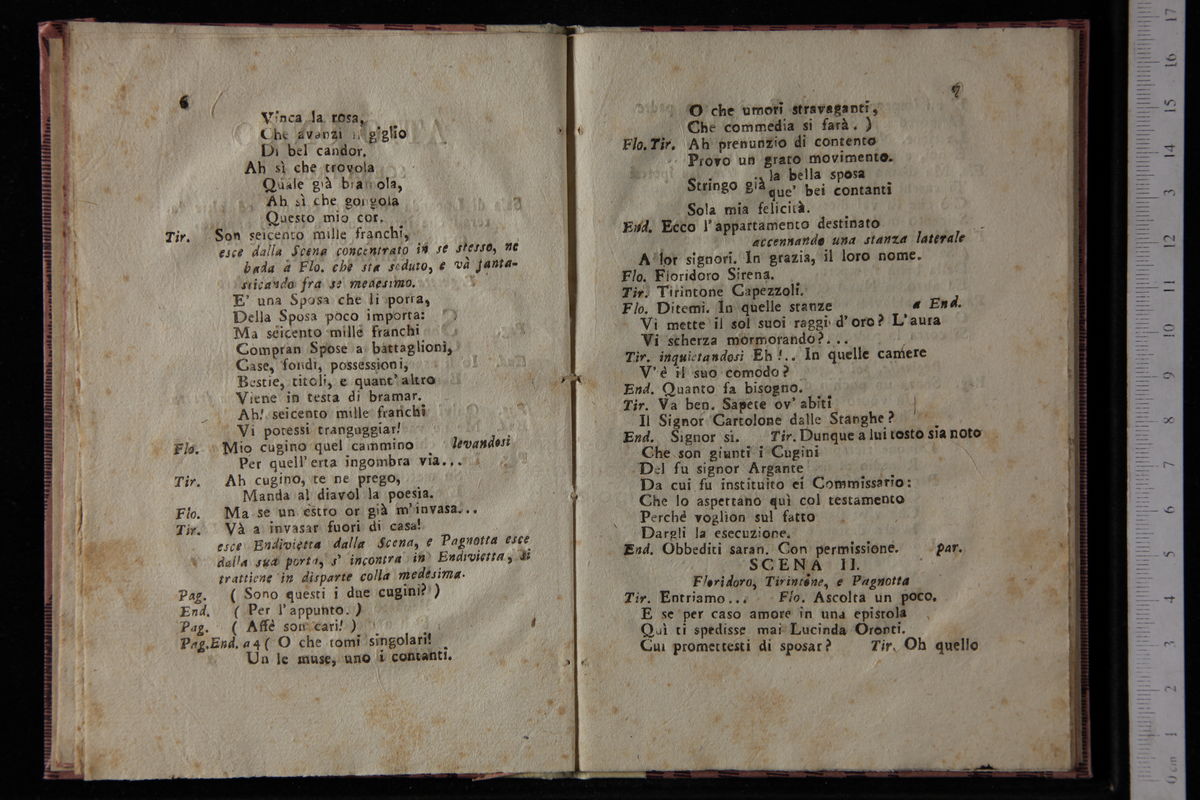 6
Vinca la rosa,
Che avanzi il giglio
Di bel candor.
Ah sì che trovola
Quale già bramola,
Ah sì che gongola
Questo mio cor.
Tir. Son seicento mille franchi,
esce dalla Scena concentrato in se stesso, ne
bada a Flo. che sta seduto, e và fanta-
sticando fra se medesimo.
E' una Sposa che li porta,
Della Sposa poco importa:
Ma seicento mille franchi
Compran Spose a battaglioni,
Case, fondi, possessioni,
Bestie, titoli, e quant' altro
Viene in testa di bramar.
Ah! seicento mille franchi
Vi potessi tranguggiar!
Flo. Mio cugino quel cammino levandosi
Per quell' erta ingombra via...
Tir. Ah cugino, te ne prego,
Manda al diavol la poesia.
Flo. Ma se un estro or già m'invasa...
Tir. Và a invasar fuori di casa!
esce Endivietta dalla Scena, e Pagnotta esce
dalla sua porta, s' incontra in Endivietta, si
trattiene in disparte colla medesima.
Pag. ( Sono questi i due cugini? )
End. ( Per l'appunto. )
Pag. ( Affè son cari! )
Pag. End. a 4 ( O che tomi singolari!
Un le muse, uno i contanti.
7
O che umori stravaganti,
Che commedia si farà. )
Flo. Tir. Ah prenunzio di contento
Provo un grato movimento.
Stringo già la bella sposa
que' bei contanti
Sola mia felicità.
End. Ecco l'appartamento destinato
accennando una stanza laterale
A lor signori. In grazia, il loro nome.
Flo. Floridoro Sirena.
Tir. Tirintone Capezzoli.
Flo. Ditemi. In quelle stanze a End.
Vi mette il sol suoi raggi d'oro? L'aura
Vi scherza mormorando?...
Tir. inquietandosi Eh!.. In quelle camere
V'è il suo comodo?
End. Quanto fa bisogno.
Tir. Va ben. Sapete ov' abiti
Il Signor Cartolone dalle Stanghe?
End. Signor sì. Tir. Dunque a lui tosto sia noto
Che son giunti i Cugini
Del fu signor Argante
Da cui fu instituito ei Commissario:
Che lo aspettano quì col testamento
Perchè voglion sul fatto
Dargli la esecuzione.
End. Obbediti saran. Con permissione. par.
SCENA II.
Floridoro, Tirintone, e Pagnotta
Tir. Entriamo... Flo. Ascolta un poco.
E se per caso amore in una epistola
Quì ti spedisse mai Lucinda Oronti.
Cui promettesti di sposar? Tir. Oh quello
0 cm 1 2 3 4 5 6 7 8 9 10 11 12 13 14 15 16 17